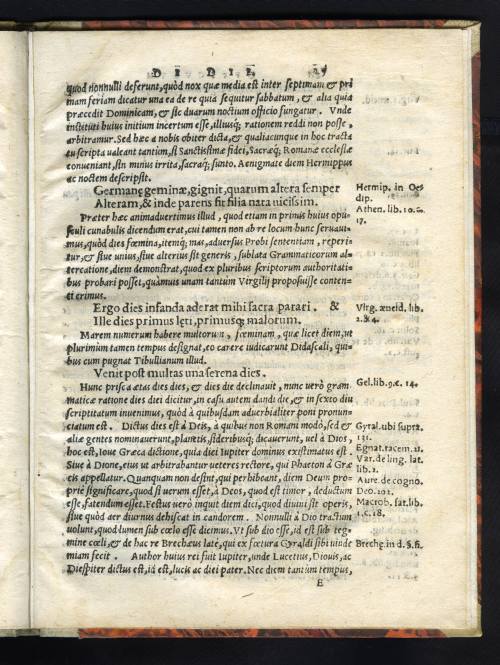 DE DIE. 17
quod nonnulli deferunt, quòd nox quæ media est inter septimam & pri
mam feriam dicatur una ea de re quia sequitur sabbatum, & alia quia
præcedit Dominicam, & sic duarum noctium officio fungatur. Vnde
instituti huius initium incertum esse, illiusq; rationem reddi non posse,
arbitramur. Sed hæc à nobis obiter dicta, & qualiacunque in hoc tracta
tu scripta ualeant tantum, si Sanctissimæ fidei, Sacræq; Romanæ ecclesiæ
conueniant, sin minus irrita, sacraq; sunto. Aenigmate diem Hermippus
ac noctem descripsit.
Germanę geminæ, gignit, quarum altera semper
Alteram, & inde parens fit filia nata uicissim.
Hermip. in Oe
dip.
Athen. lib. 10. c.
17.
Præter hæc animaduertimus illud, quod etiam in primis huius opu-
sculi cunabulis dicendum erat, cui tamen non ab re locum hunc seruaui-
mus, quòd dies fœmina, itemq; mas, aduersus Probi sententiam, reperi-
tur, & siue unius, siue alterius sit generis, sublata Grammaticorum al-
tercatione, idem demonstrat, quod ex pluribus scriptorum authoritati-
bus probari posset, quàmuis unam tantum Virgilij proposuisse conten-
ti erimus.
Ergo dies infanda aderat mihi sacra parari. &
Ille dies primus lęti, primusq; malorum.
Virg. æneid. lib.
2. & 4.
Marem numerum habere multorum, fœminam, quæ licet diem, ut
plurimùm tamen tempus designat, eo carere iudicarunt Didascali, qui-
bus cum pugnat Tibullianum illud.
Venit post multas una serena dies.
Hunc prisca ætas dies dies, & dies die declinauit, nunc uerò gram-
maticæ ratione dies diei dicitur, in casu autem dandi die, & in sexto diu
scriptitatum inuenimus, quòd à quibusdam aduerbialiter poni pronun-
ciatum est. Dictus dies est à Deis, à quibus non Romani modò, sed &
aliæ gentes nominauerunt, planetis, sideribusq; dicauerunt, uel à Dios,
hoc est, Ioue Græca dictione, quia diei Iupiter dominus existimatus est.
Siue à Dione, eius ut arbitrabantur ueteres rectore, qui Phaeton à Græ
cis appellatur. Quanquam non desint, qui perhibeant, diem Deum pro-
priè significare, quod si uerum esset, à Deos, quod est timor, deductum
esse, fatendum esset. Festus uerò inquit diem dici, quod diuini sit operis,
siue quòd aer diurnus dehiscat in candorem. Nonnulli à Dio tractum
uolunt, quod lumen sub cœlo esse dicimus. Vt sub dio esse, id est sub teg-
mine cœli, & de hac re Brechæus latè, qui ex fœtura Gyraldi sibi uinde
miam fecit. Author huius rei fuit Iupiter, unde Lucetius, Diouis, ac
Diespiter dictus est, id est, lucis ac diei pater. Nec diem tantum tempus,
Gel. lib. 9. c. 14.
Gyral. ubi supra.
131.
Egnat. racem. 11.
Var. de ling. lat.
lib. 2.
Aure. de cogno.
Deo. 102.
Macrob. sat. lib.
1. c. 18.
Brech. in d. §. si.
E